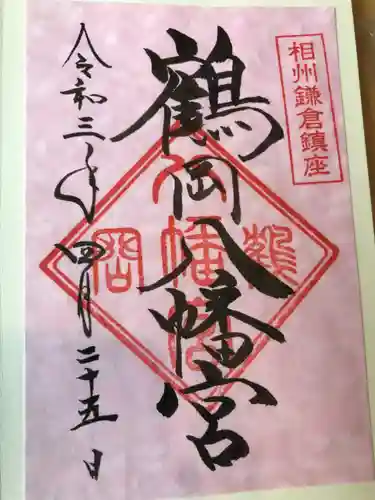 相州鎌倉鎮座
鶴岡八幡宮
鶴岡八幡宮
令和三年四月二十五日